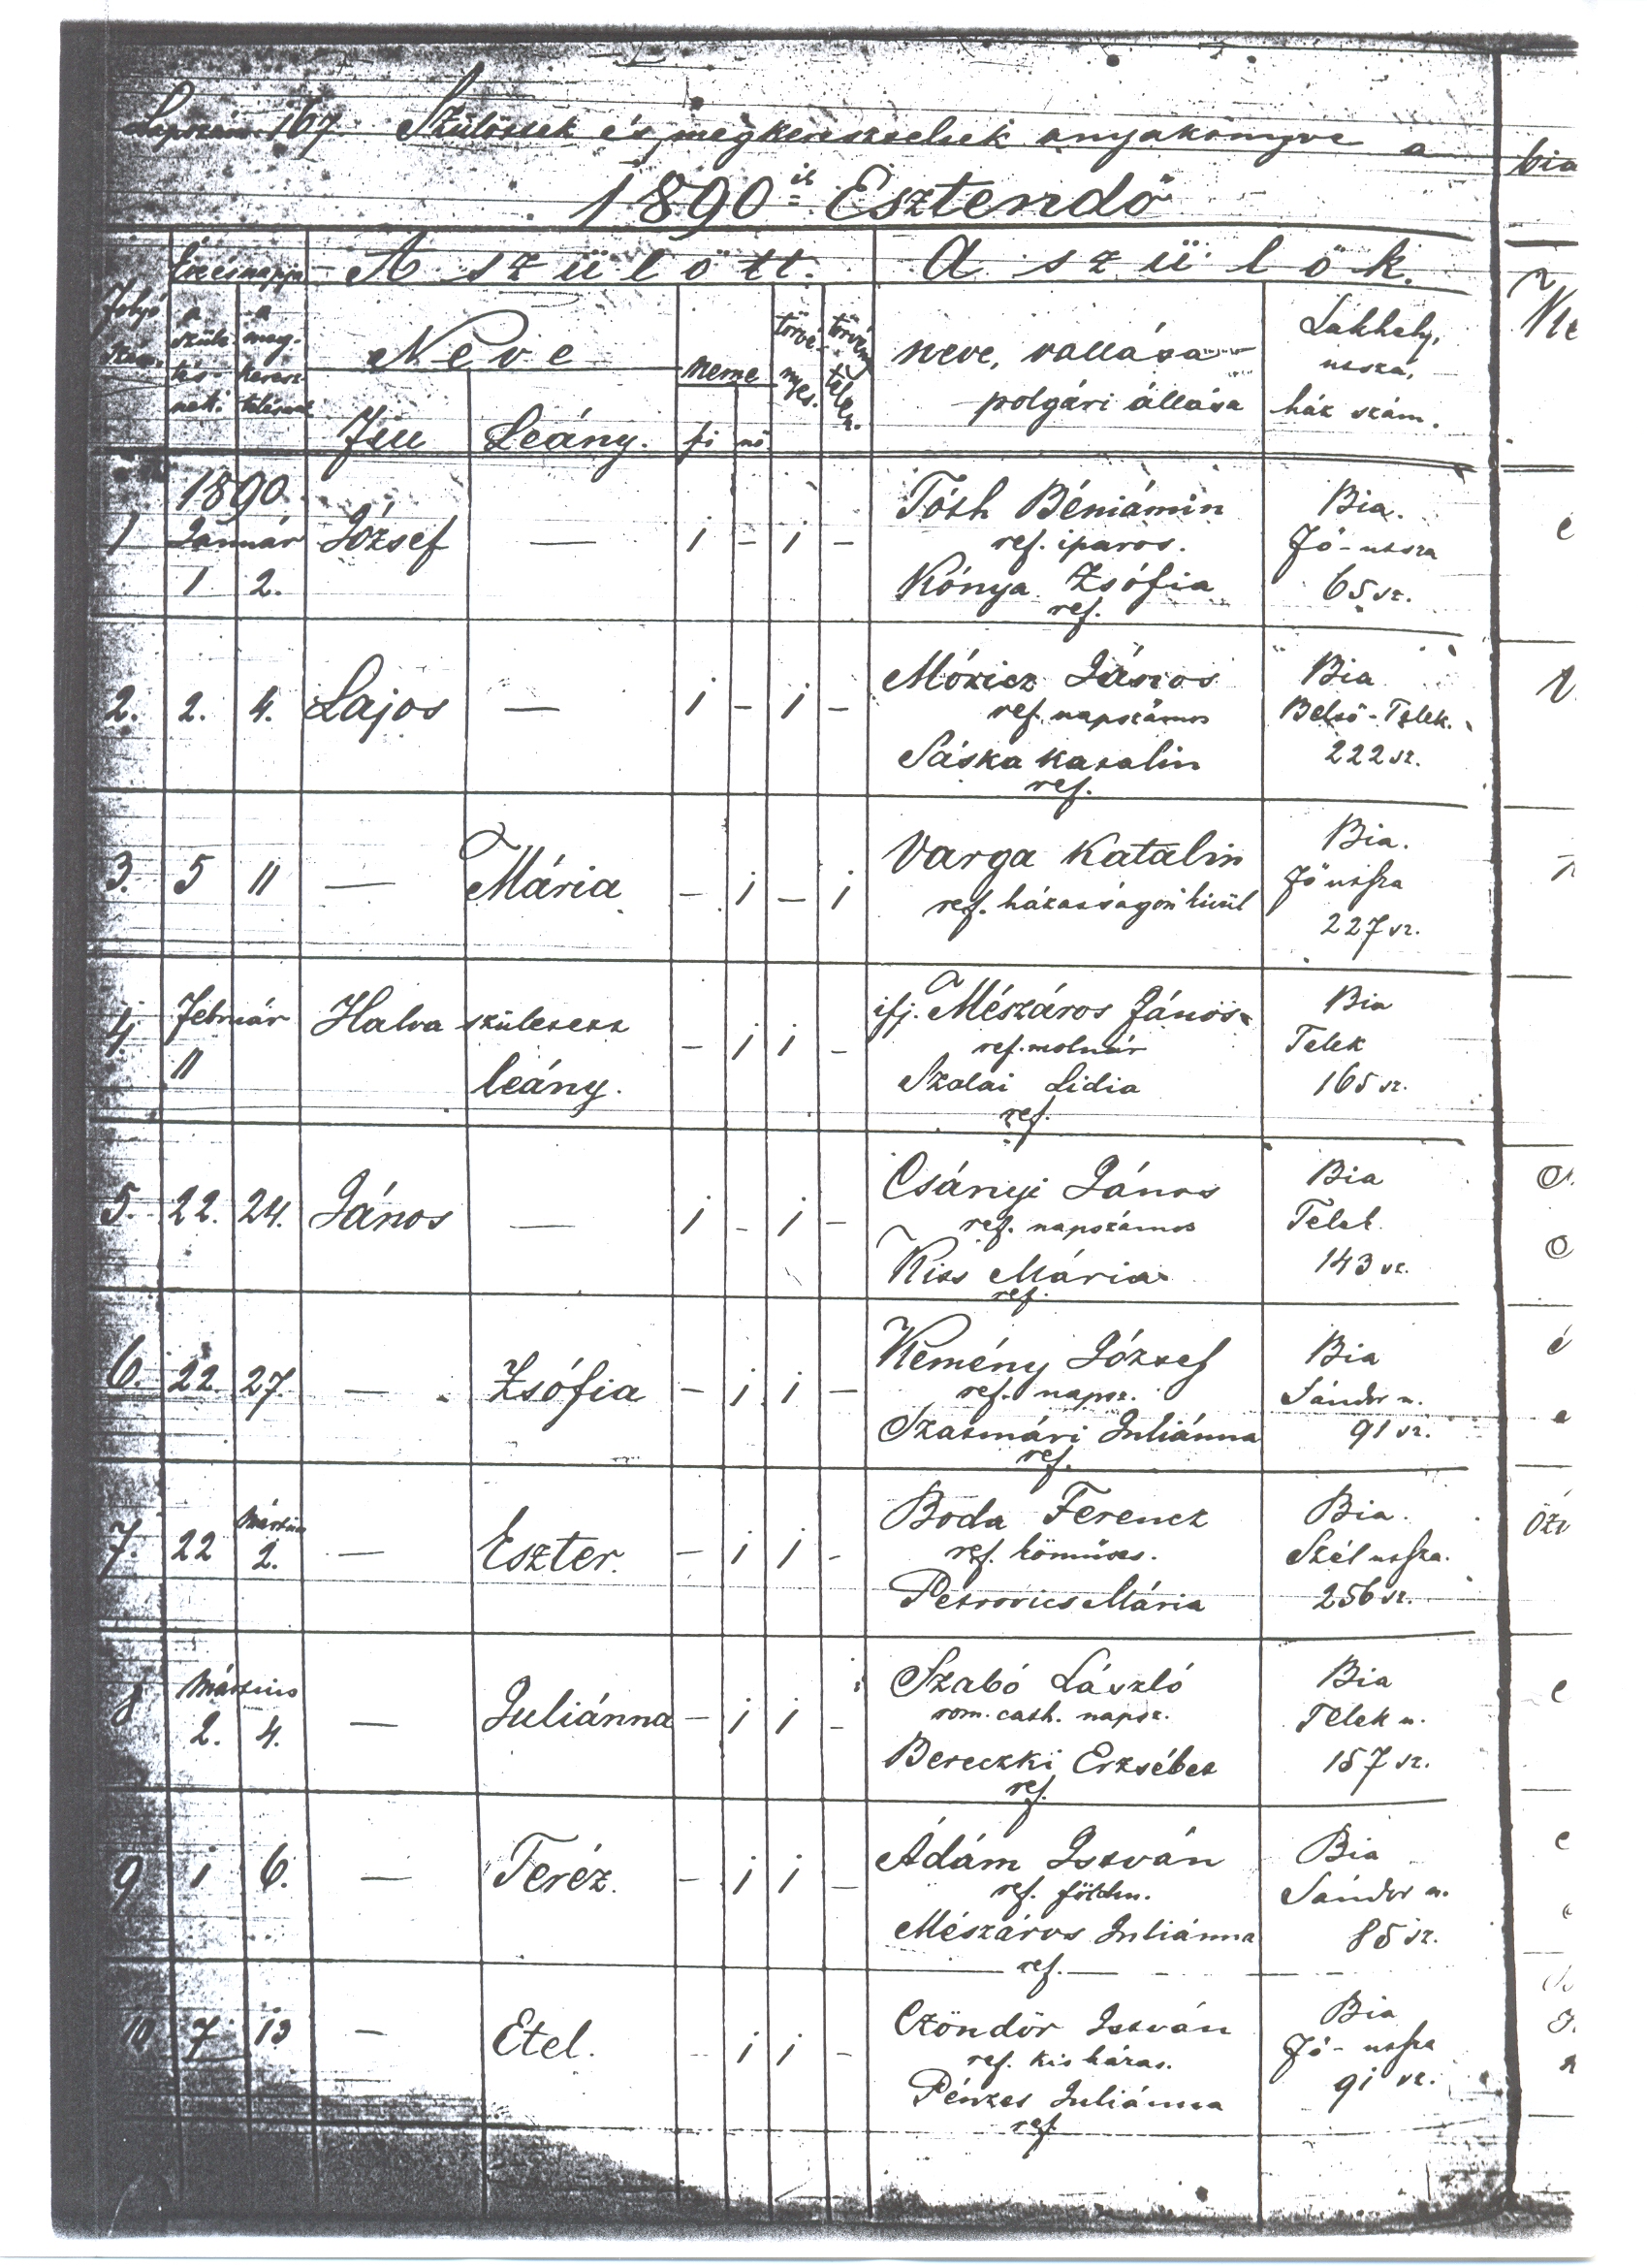 Lapszám 167. Szülöttek és megkereszteltek anyakönyve a
bia
1890ik Esztendő
Év és napja
A szülött.
A szülők.
Folyó szám.
a születésnek.
a megkeresztelésnek
Neve
neme
törvényes.
törvénytelen.
neve, vallása
polgári állása
Lakhely,
utsza,
ház szám.
Fiu Leány. fi nő.
1890
1 Január József — 1 - 1 - Tóth Béniámin Bia.
ref. iparos. Fő-utsza
1 2. Kónya Zsófia 65 sz.
ref.
2. 2. 4. Lajos — 1 - 1 - Móricz János Bia
ref. napszámos Belső-Telek.
Sáska Katalin 222 sz.
ref.
3. 5 11 — Mária - 1 - 1 Varga Katalin Bia.
ref. házasságon kivül Fő utsza
227 sz.
4. Február Halva született - 1 1 - ifj. Mészáros János Bia
ref. molnár Telek
11 leány. Szalai Lidia 165 sz.
ref.
5. 22. 24. János — 1 - 1 - Csányi János Bia
ref. napszámos Telek.
Kiss Mária 143 sz.
ref.
6. 22. 27. — Zsófia - 1 1 - Kemény József Bia
ref. napsz. Sándor u.
Szatmári Juliánna 91 sz.
ref.
7. 22 Mártius 2. — Eszter. - 1 1 - Boda Ferencz Bia.
ref. kőmüves. Szél utsza.
Petrovics Mária 256 sz.
8 Mártius Szabó László Bia
2. 4. — Juliánna - 1 1 - rom. cath. napsz. Telek u.
Bereczki Erzsébet 157 sz.
ref.
9 1 6. — Teréz. - 1 1 - Ádám István Bia
ref. földm. Sándor u.
Mészáros Juliánna 85 sz.
ref.
10 7 13 — Etel. - 1 1 - Czöndör István Bia
ref. kis házas. Fő-utsza
Pénzes Juliánna 91 sz.
ref.